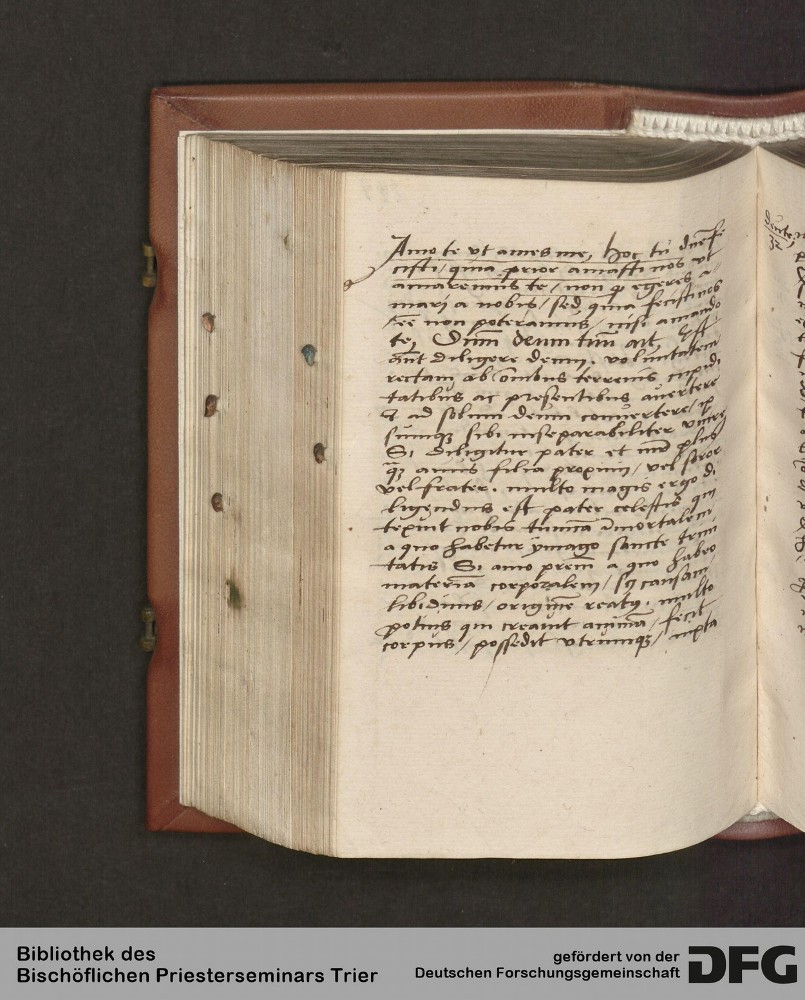 Amo te vt ames me, hoc tu dne fe
cisti / quia prior amasti nos vt
amaremus te / non ꝙ egeres a
mari a nobis / sed quia fecistinos
eē non poteramus / nisi amando
te, Diuin deum tuū ait, Est
aūt diligere deum . voluntatem
rectam ab oībus terrenis cupidi
tatibus ac presentibus auertere
& ad solum deum conuertere / ip
sumqꝫ sibi inseparabiliter vnire
Si diligitur pater et mr̄ plus
qꝫ̄ amus filia proximi / vel soror
vel frater . multo magis ergo di
ligendus est pater celestis qui
texuit nobis tunicā īmortalem
a quo habetur ymago sancte trini
tatis Si amo prēm a quo habeo
materiā corporalem / sꝫ causam
libidinis / origine reatꝰ . multo
potius qui creauit animā / fecit
corpus / possedit vtrumqꝫ / iuxta
Bibliothek des
Bischöflichen Priesterseminars Trier
gefördert von der
Deutschen Forschungsgemeinschaft
DFG